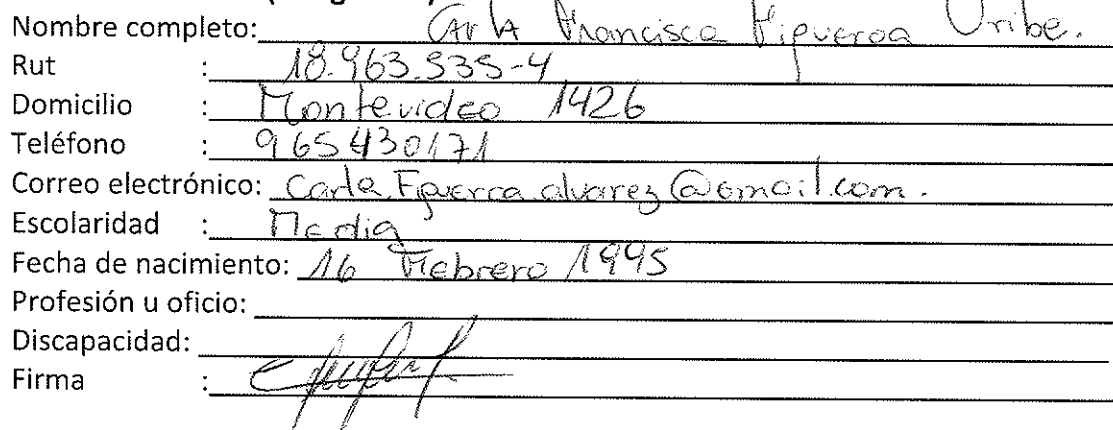 Nombre completo: Carla Francisca Figueroa Uribe.
Rut : 18.963.535-4
Domicilio : Montevideo 1426
Teléfono : 965430171
Correo electrónico: Carla.Figueroa.alvarez@gmail.com.
Escolaridad : Media
Fecha de nacimiento: 16 Febrero 1995
Profesión u oficio:
Discapacidad:
Firma :